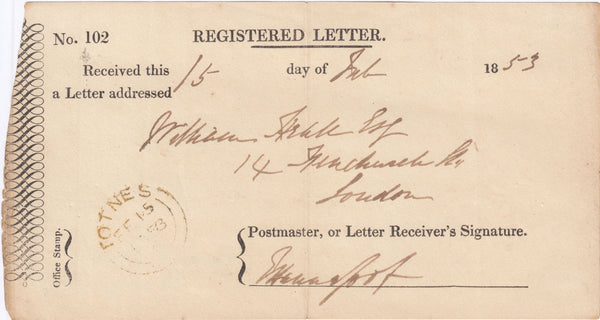 No. 102 REGISTERED LETTER.
Received this 15 day of Feb 1853
a Letter addressed
William Esq
14 Fenchurch St
London
TOTNES
FE 15
1853
Office Stamp.
Postmaster, or Letter Receiver's Signature.